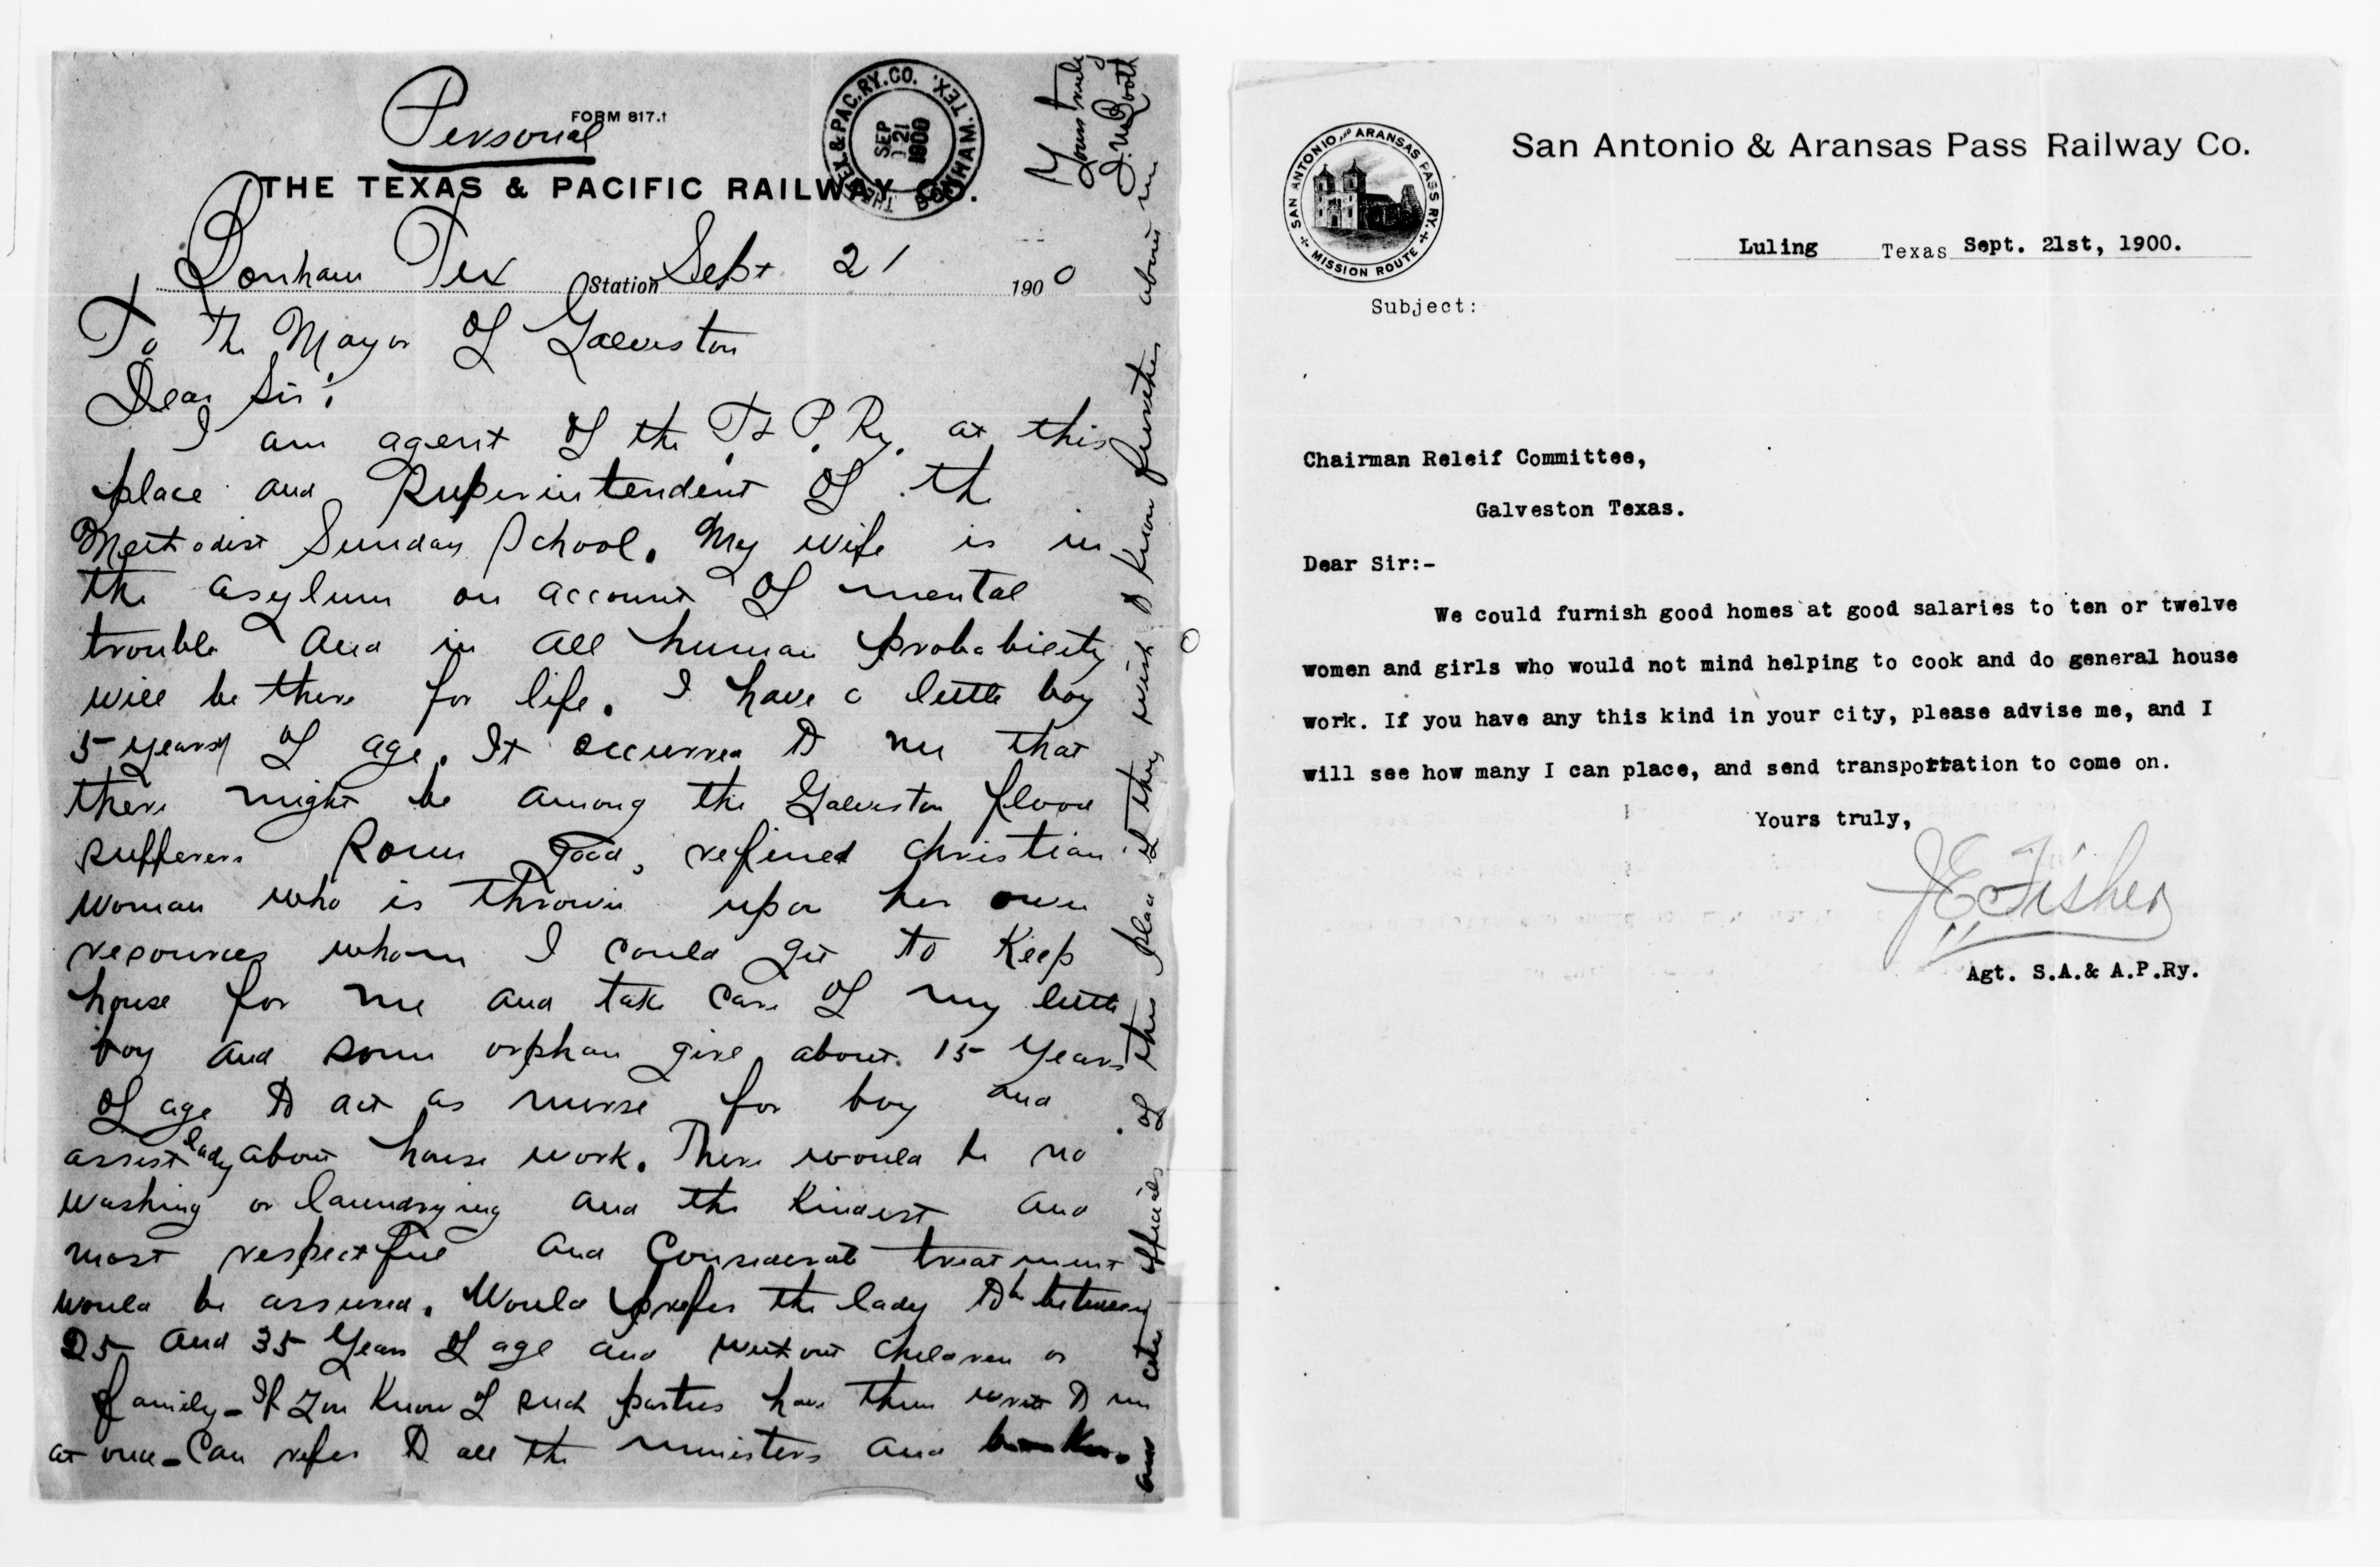 Personal
FORM 817.1
THE TEXAS & PACIFIC RAILWAY CO.
THE TEX & PAC. RY. CO. BONHAM, TEX.
SEP 21 1900
Bonham Tex Station Sept 21 1900
To the Mayor of Galveston
Dear Sir:
I am agent of the T & P. Ry. at this
place and Superintendent of the
Methodist Sunday School. My wife is in
the asylum on account of mental
trouble and in all human probability
will be there for life. I have a little boy
5 years of age. It occurred to me that
there might be among the Galveston flood
sufferers some good, refined christian
woman who is thrown upon her own
resources whom I could get to keep
house for me and take care of my little
boy and some orphan girl about 15 years
of age to act as nurse for boy and
assist lady about house work. There would be no
washing or laundrying and the kindest and
most respectful and considerate treatment
would be assured. Would prefer the lady to be between
25 and 35 years of age and without children or
family - If you know of such parties have them write to me
at once - Can refer to all the ministers and bankers
and city officials of this place if they wish to know further about me
Yours truly
J. W. Booth
SAN ANTONIO AND ARANSAS PASS RY.
MISSION ROUTE
San Antonio & Aransas Pass Railway Co.
Luling Texas Sept. 21st, 1900.
Subject:
Chairman Releif Committee,
Galveston Texas.
Dear Sir:-
We could furnish good homes at good salaries to ten or twelve
women and girls who would not mind helping to cook and do general house
work. If you have any this kind in your city, please advise me, and I
will see how many I can place, and send transportation to come on.
Yours truly,
J E Fisher
Agt. S.A.& A.P.Ry.